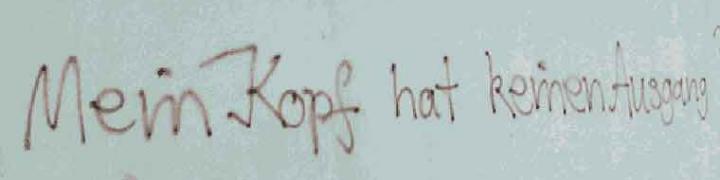 Mein Kopf hat keinen Ausgang